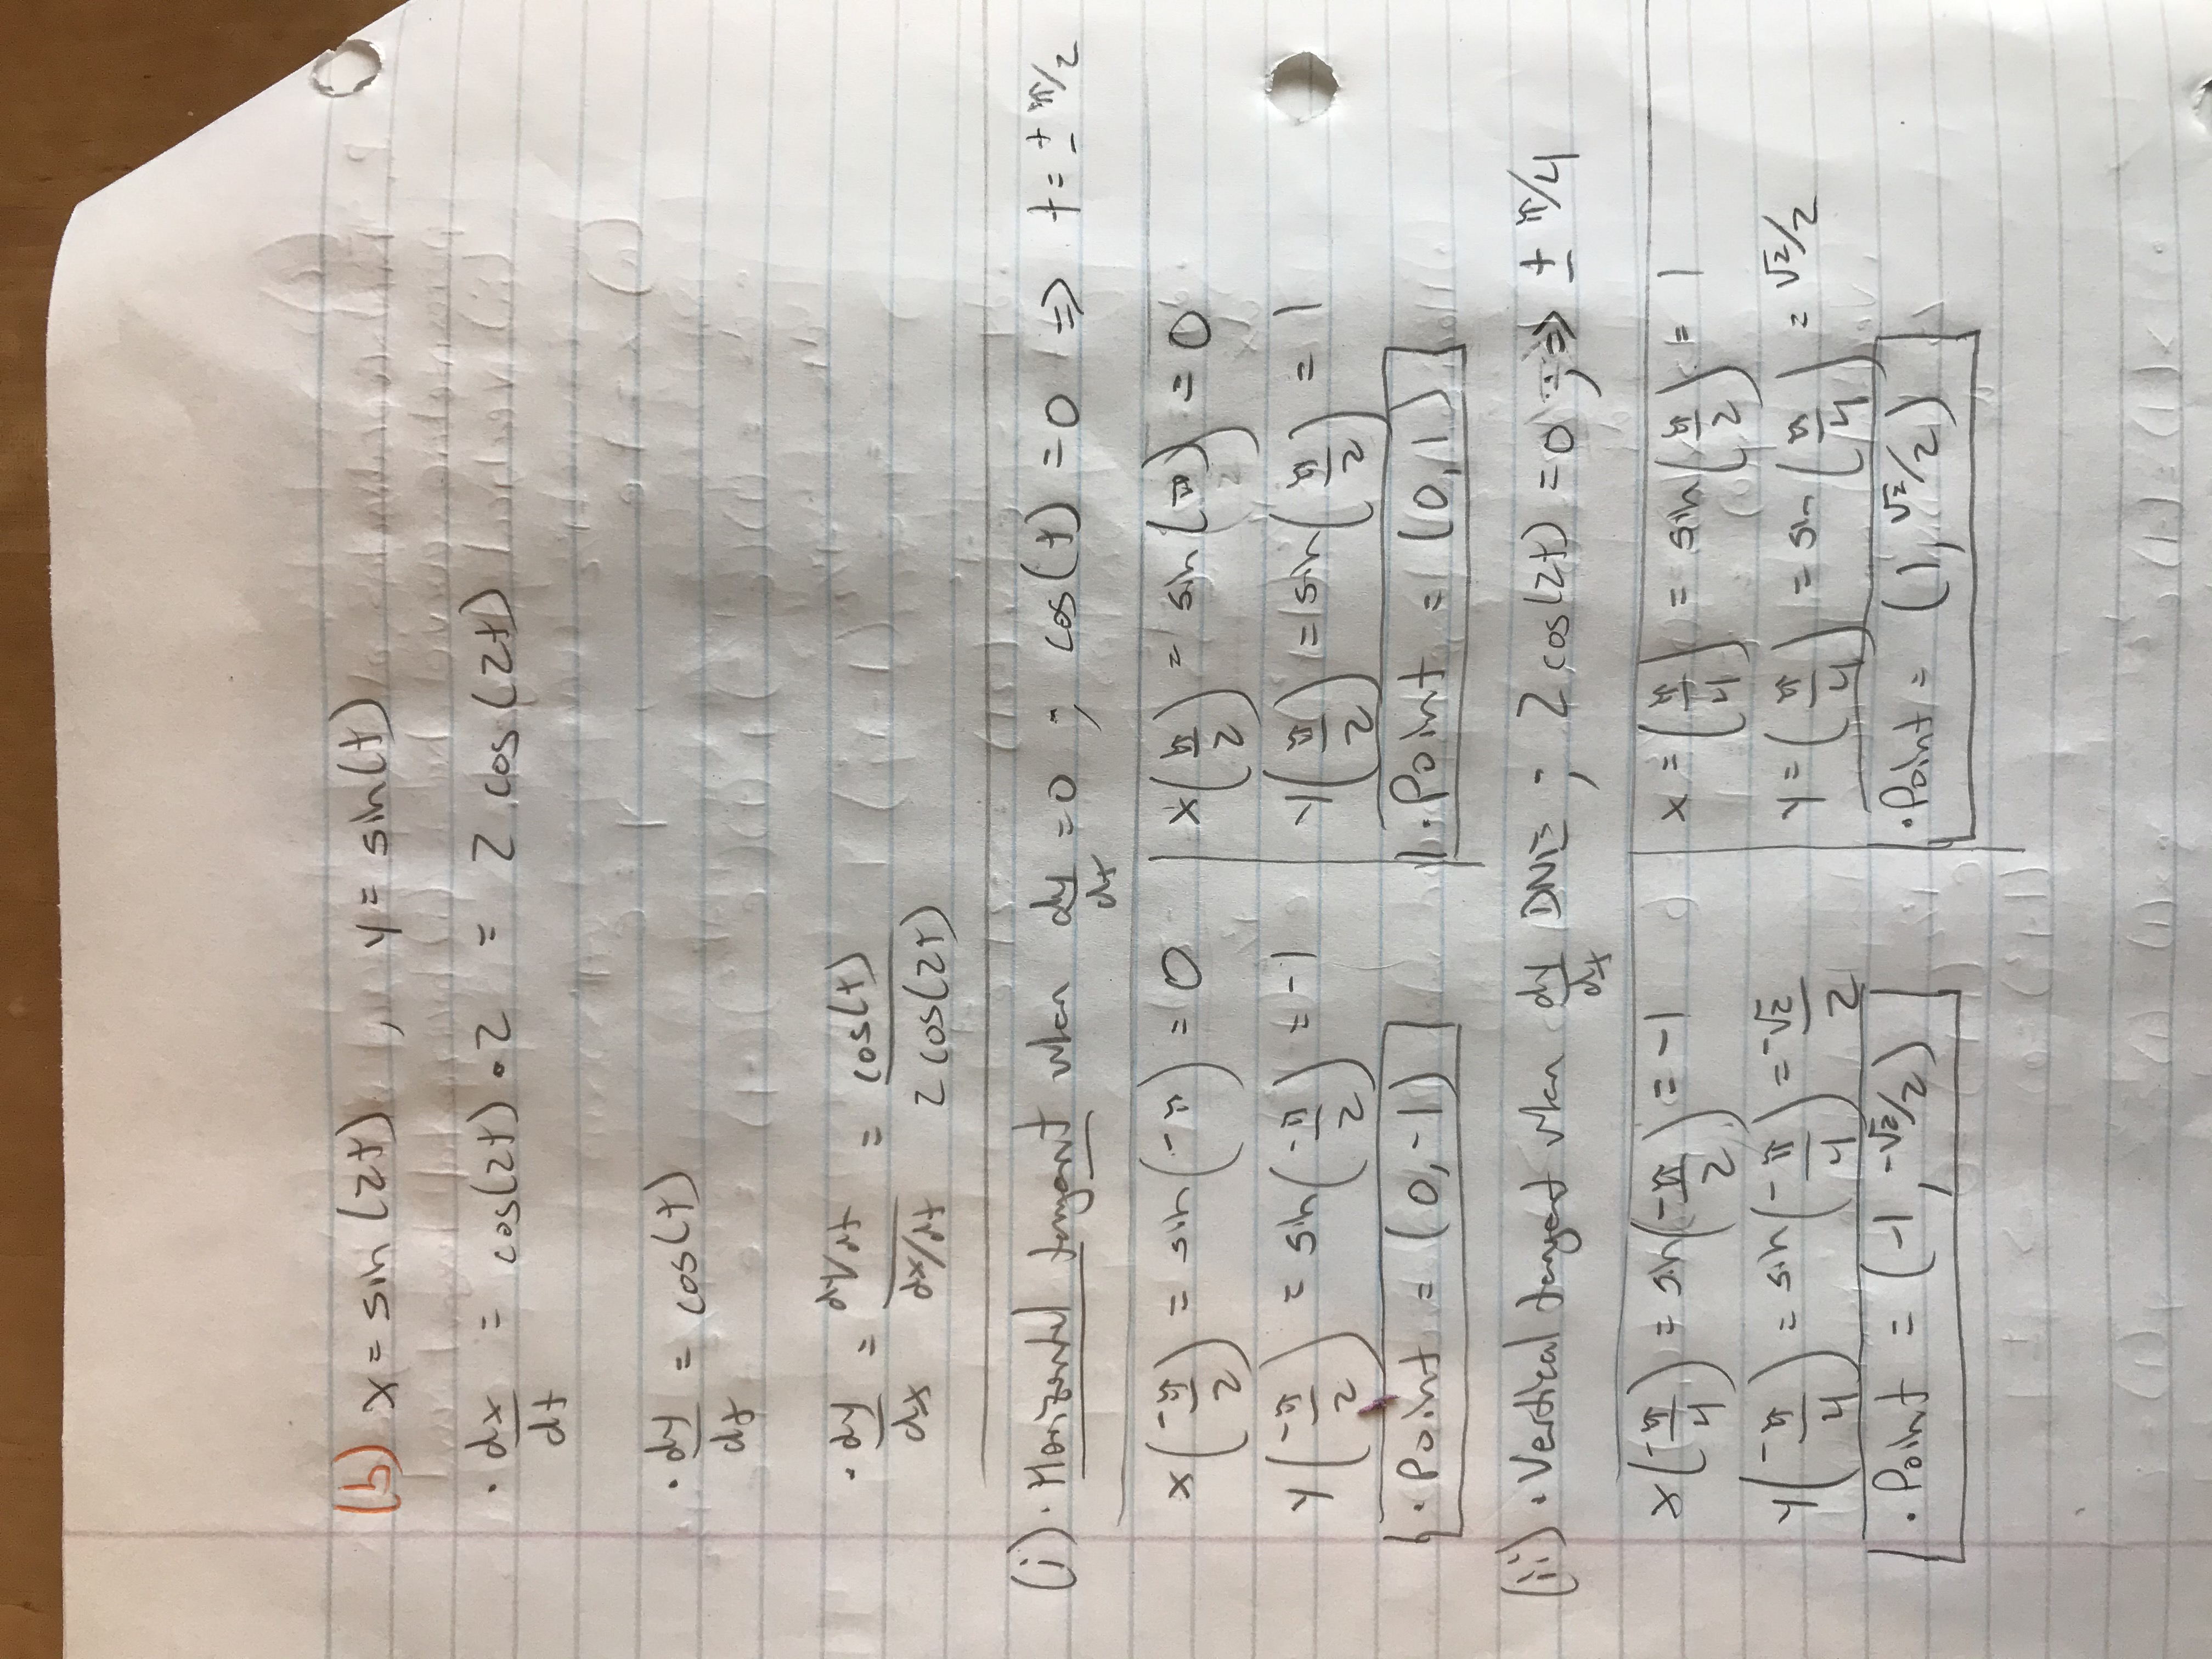 (b) x = sin(2t) , y = sin(t)
· dx/dt = cos(2t) · 2 = 2 cos(2t)
· dy/dt = cos(t)
· dy/dx = (dy/dt)/(dx/dt) = cos(t)/(2 cos(2t))
(i) · Horizontal tangent when dy/dt = 0 ; cos(t) = 0 => t = ± π/2
x(-π/2) = sin(-π) = 0
y(-π/2) = sin(-π/2) = -1
· Point = (0, -1)
x(π/2) = sin(π) = 0
y(π/2) = sin(π/2) = 1
· Point = (0, 1)
(ii) · Vertical tangent when dy/dt DNE ; 2 cos(2t) = 0 ; => ± π/4
x(-π/4) = sin(-π/2) = -1
y(-π/4) = sin(-π/4) = -√2/2
· Point = (-1, -√2/2)
x = (π/4) = sin(π/2) = 1
y = (π/4) = sin(π/4) = √2/2
· Point = (1, √2/2)